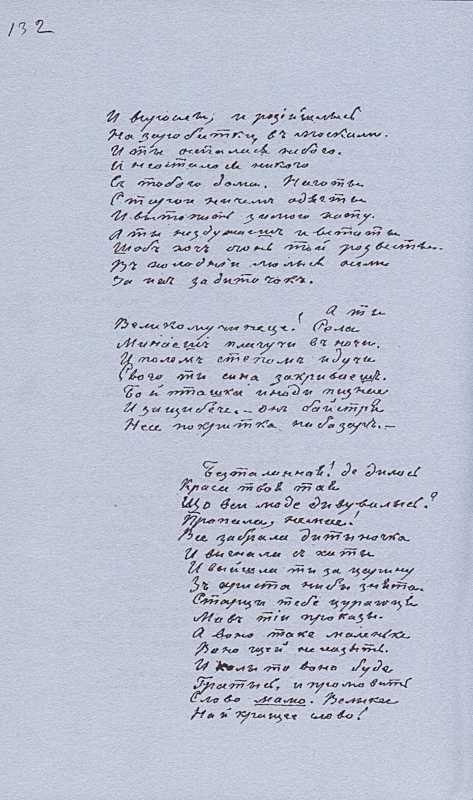 132
И выросли, и розійшлысь
На заробитки, въ москали.
И ты осталася небого.
И неосталося никого
Съ тобою дома. Наготы
Старои ничимъ одѣты
И вытопить зимою хату.
А ты нездужаешъ и встаты
Щобъ хочъ огонь той розвести.
Въ холодній молысь осели
За ихъ за диточокъ.
А ты
Великомученице! Села
Минаешъ плачучи въ ночи.
И полемъ степомъ идучи
Свого ты сина закриваешъ.
Бо й пташка иноди пизнае
И защибече.— Онъ байстря
Несе покритка на базаръ.—
Безталанная! де дилась
Краса твоя тая
Що вси люде дивувались?
Пропала, немае!
Все забрала дитыночка
И вигнала съ хаты
И выйшла ты за царину
Зъ хреста ниби знята.
Старци тебе цураюця
Мовъ тіи проказы.
А воно таке маленьке
Воно щей нелазыть.
И колы то воно буде
Гратысь, и промовить
Слово мамо. Великее
Найкращее слово!